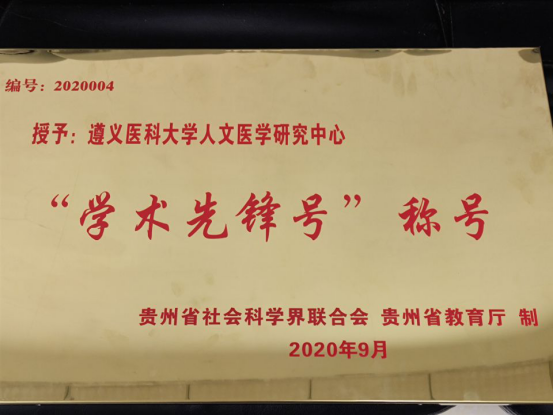 编号：2020004
授予：遵义医科大学人文医学研究中心
“学术先锋号”称号
贵州省社会科学界联合会 贵州省教育厅 制
2020年9月